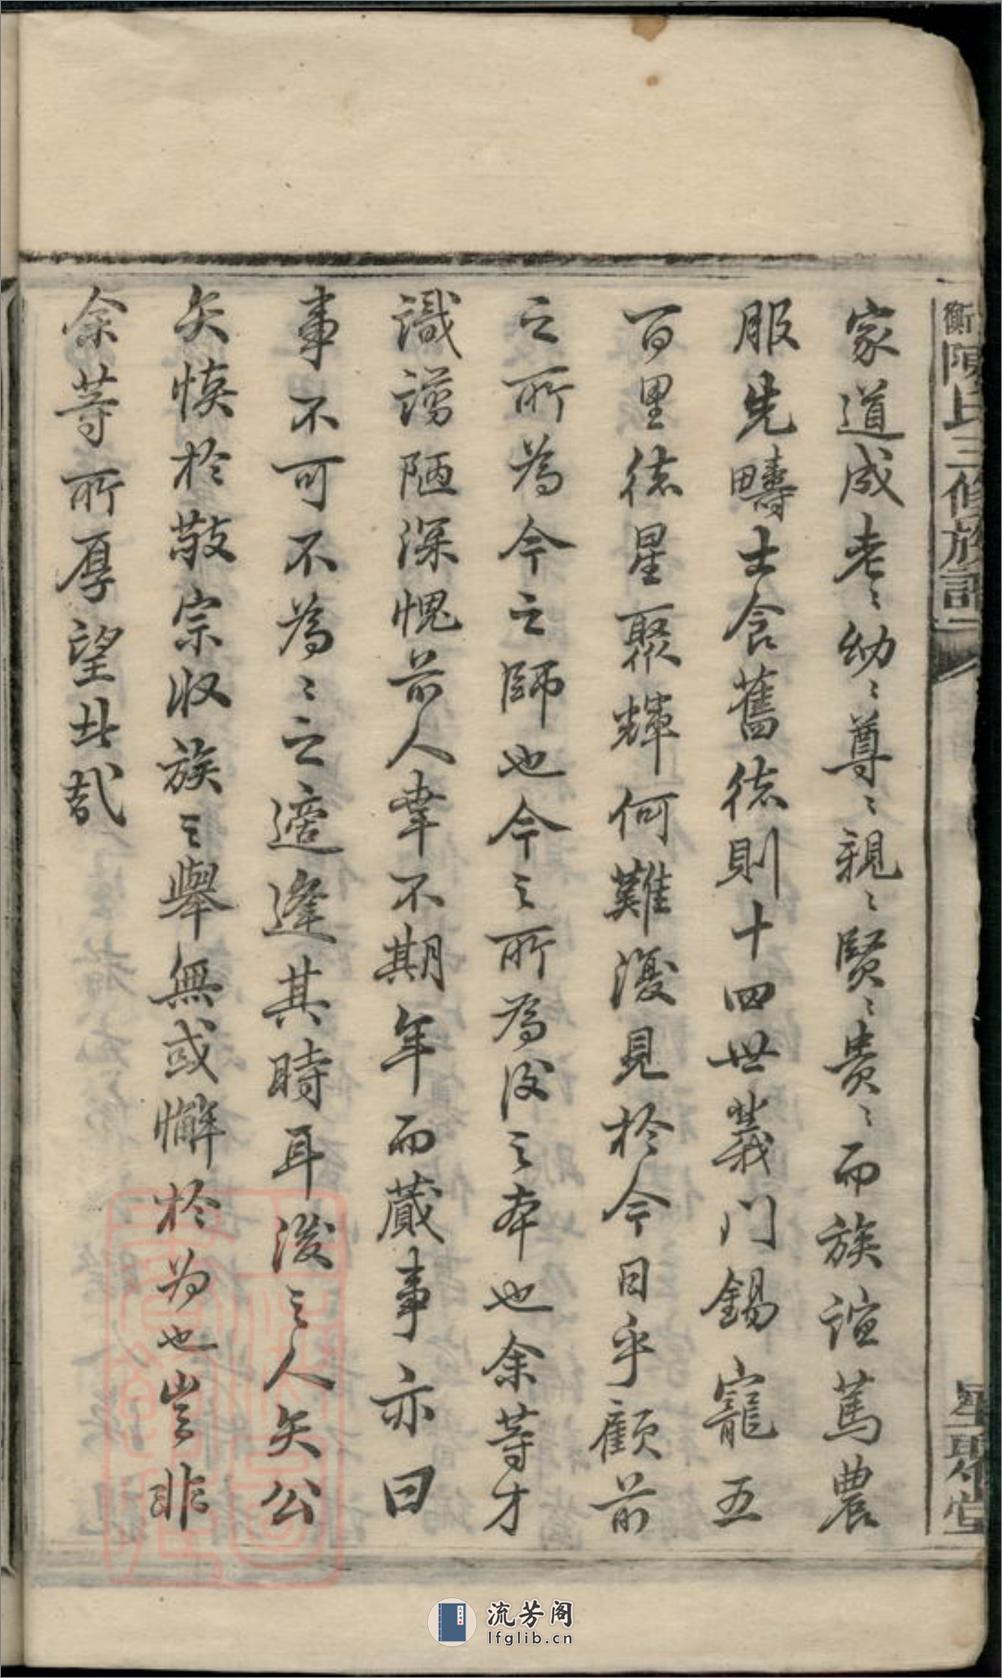 衡陳氏三修族譜
星聚堂
家道成老〻幼〻尊〻親〻賢〻貴〻而族誼篤農
服先疇士食舊徳則十四世義门錫寵五
百里徳星聚輝何難復見於今日乎顧前
之所為今之師也今之所為後之本也余等才
識謭陋深愧前人幸不期年而蕆事亦曰
事不可不為〻之適逢其時耳後之人矢公
矢慎於敬宗收族之舉無或懈於为也豈非
余等所厚望也哉
流芳阁
lfglib.cn